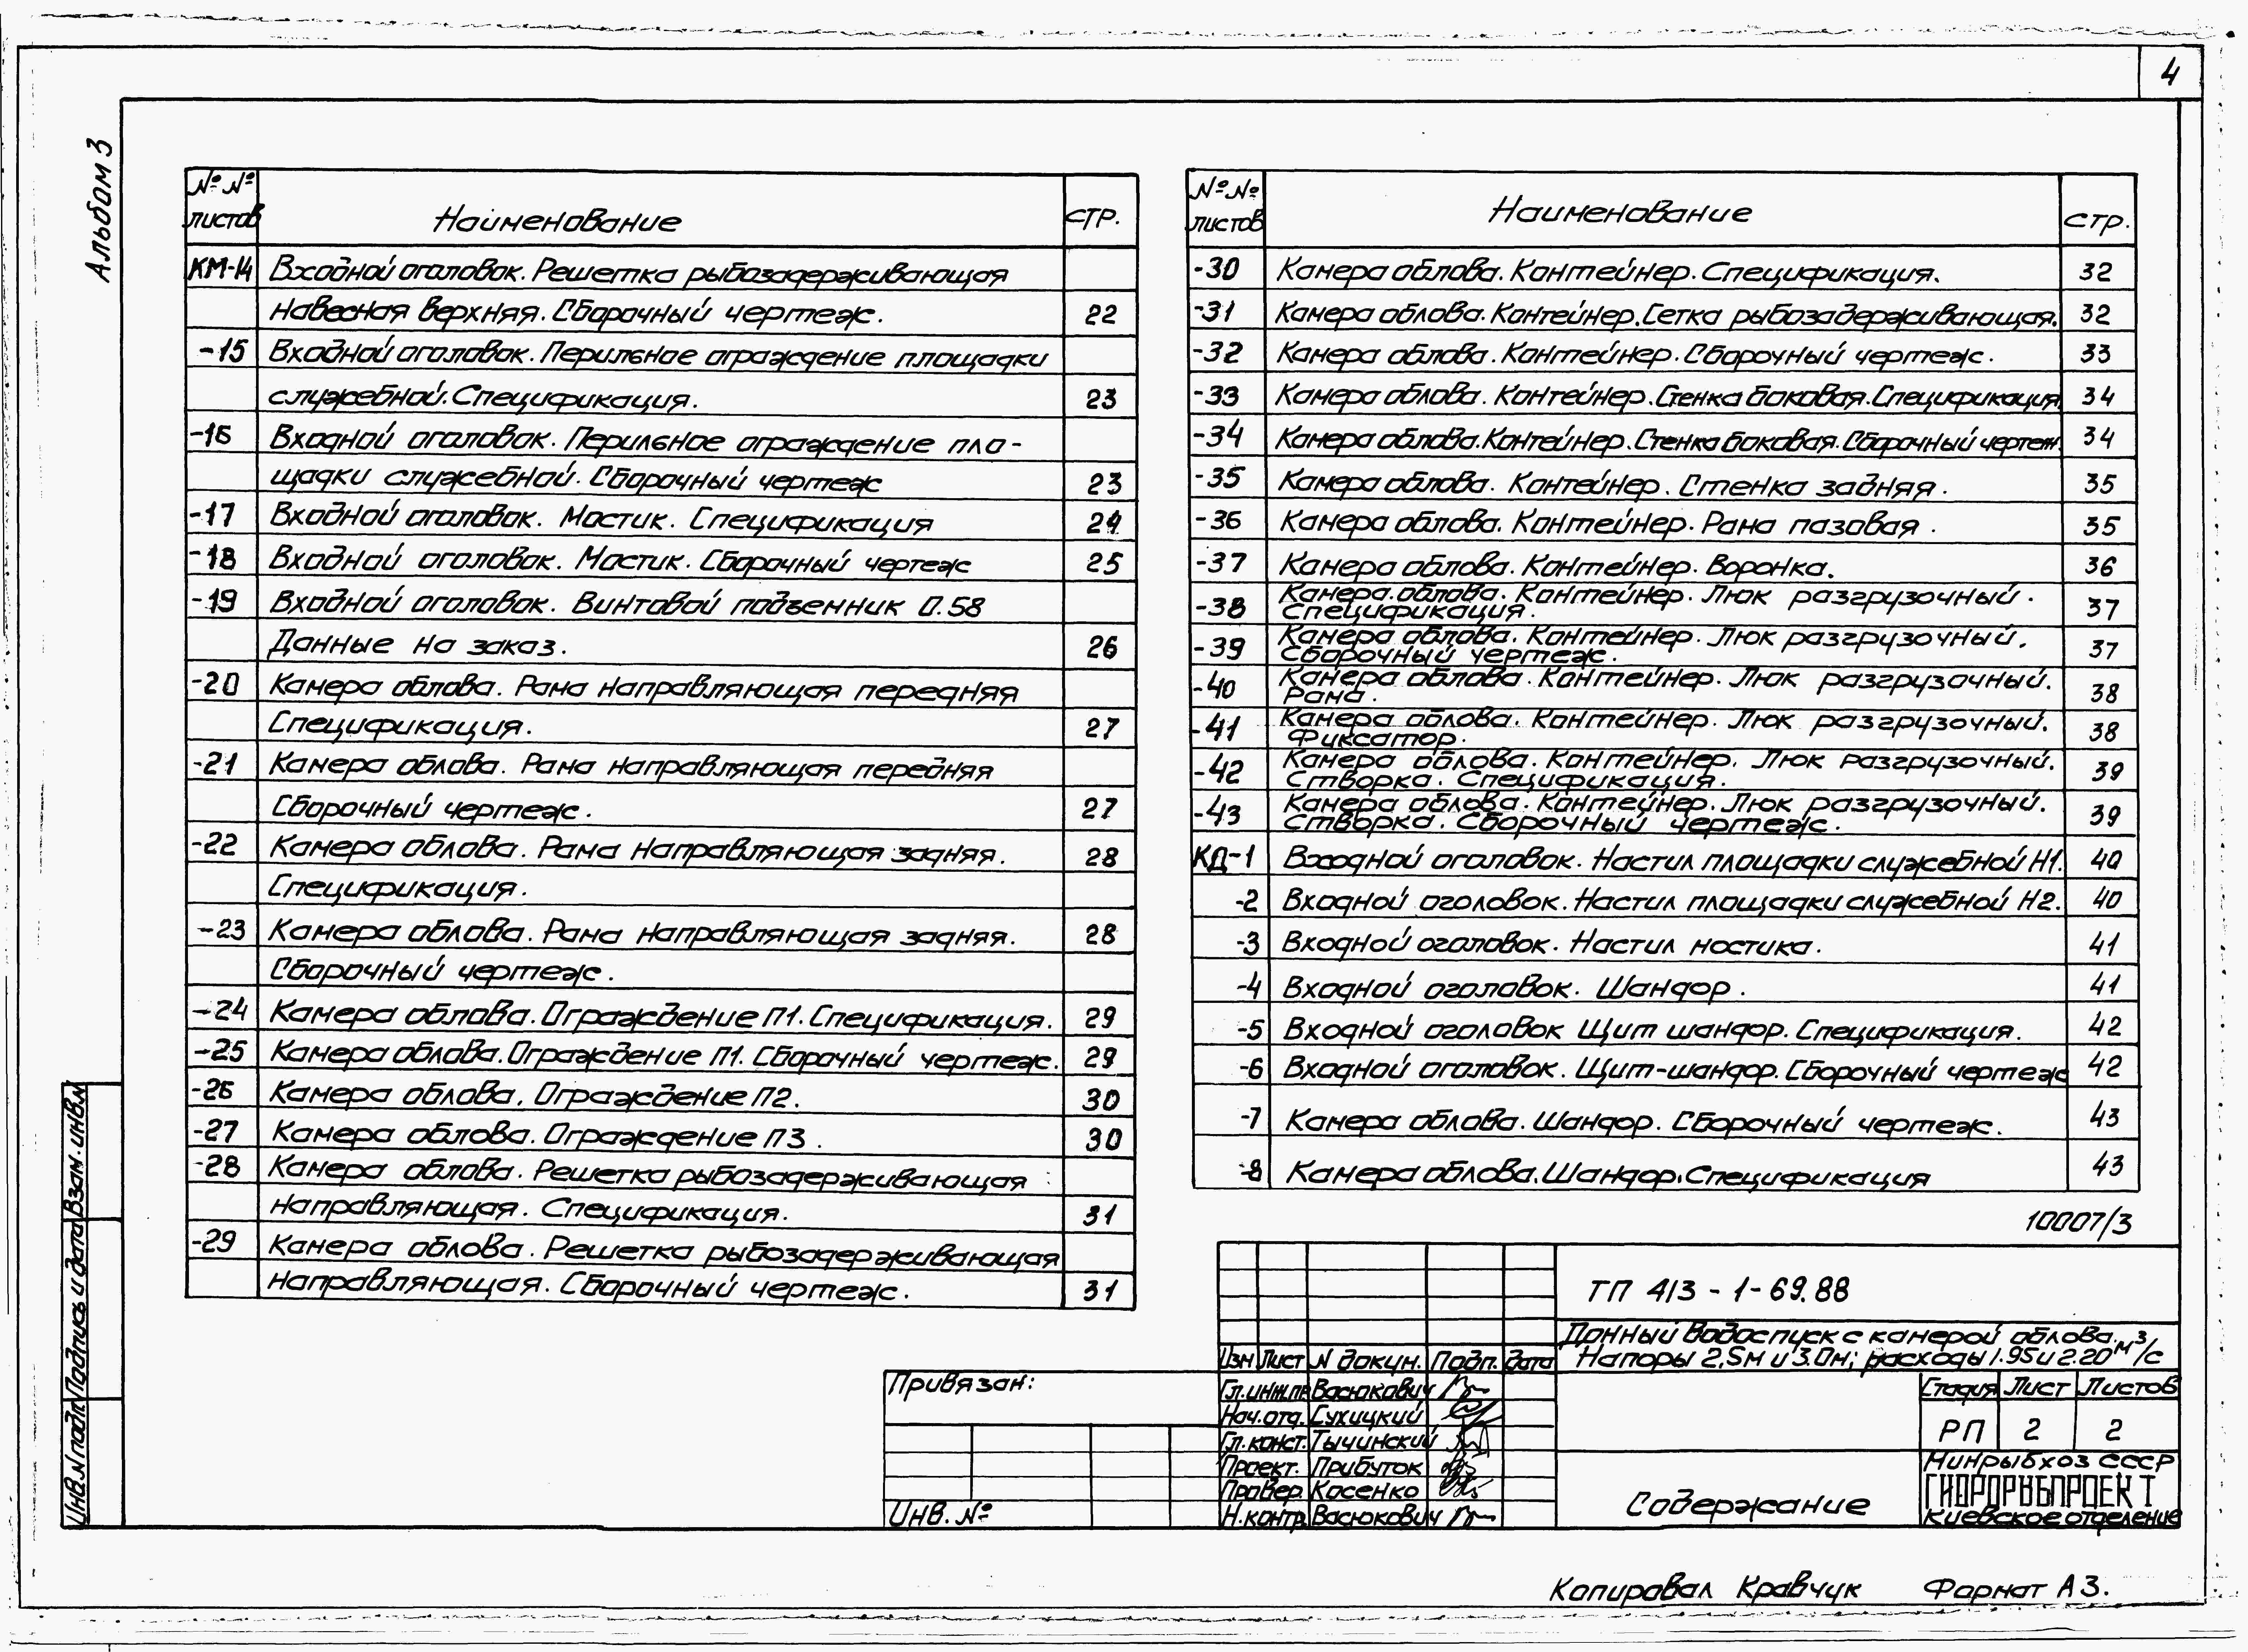 4
Альбом 3
№ №
листов
Наименование
стр.
КМ-14 Входной оголовок. Решетка рыбозадерживающая
навесная верхняя. Сборочный чертеж. 22
-15 Входной оголовок. Перильное ограждение площадки
служебной. Спецификация. 23
-16 Входной оголовок. Перильное ограждение пло-
щадки служебной. Сборочный чертеж 23
-17 Входной оголовок. Мостик. Спецификация 24
-18 Входной оголовок. Мостик. Сборочный чертеж 25
-19 Входной оголовок. Винтовой подъемник 0.58
Данные на заказ. 26
-20 Камера облова. Рама направляющая передняя
Спецификация. 27
-21 Камера облова. Рама направляющая передняя
Сборочный чертеж. 27
-22 Камера облова. Рама направляющая задняя. 28
Спецификация.
-23 Камера облова. Рама направляющая задняя. 28
Сборочный чертеж.
-24 Камера облова. Ограждение П1. Спецификация. 29
-25 Камера облова. Ограждение П1. Сборочный чертеж. 29
-26 Камера облова. Ограждение П2. 30
-27 Камера облова. Ограждение П3. 30
-28 Камера облова. Решетка рыбозадерживающая
направляющая. Спецификация. 31
-29 Камера облова. Решетка рыбозадерживающая
направляющая. Сборочный чертеж. 31
№ №
листов
Наименование
стр.
-30 Камера облова. Контейнер. Спецификация. 32
-31 Камера облова. Контейнер. Сетка рыбозадерживающая. 32
-32 Камера облова. Контейнер. Сборочный чертеж. 33
-33 Камера облова. Контейнер. Стенка боковая. Спецификация. 34
-34 Камера облова. Контейнер. Стенка боковая. Сборочный чертеж. 34
-35 Камера облова. Контейнер. Стенка задняя. 35
-36 Камера облова. Контейнер. Рама пазовая. 35
-37 Камера облова. Контейнер. Воронка. 36
-38 Камера облова. Контейнер. Люк разгрузочный.
Спецификация. 37
-39 Камера облова. Контейнер. Люк разгрузочный.
Сборочный чертеж. 37
-40 Камера облова. Контейнер. Люк разгрузочный.
Рама. 38
-41 Камера облова. Контейнер. Люк разгрузочный.
Фиксатор. 38
-42 Камера облова. Контейнер. Люк разгрузочный.
Створка. Спецификация. 39
-43 Камера облова. Контейнер. Люк разгрузочный.
Створка. Сборочный чертеж. 39
КД-1 Входной оголовок. Настил площадки служебной Н1. 40
-2 Входной оголовок. Настил площадки служебной Н2. 40
-3 Входной оголовок. Настил мостика. 41
-4 Входной оголовок. Шандор. 41
-5 Входной оголовок Щит шандор. Спецификация. 42
-6 Входной оголовок. Щит-шандор. Сборочный чертеж 42
-7 Камера облова. Шандор. Сборочный чертеж. 43
-8 Камера облова. Шандор. Спецификация 43
10007/3
ТП 413-1-69.88
Донный водоспуск с камерой облова.
Напоры 2,5м и 3.0м; расходы 1.95 и 2.20 м³/с
Изм Лист N докум. Подп. Дата
Привязан:
Инв. №
Гл.инж.пр Васюкович
Нач.отд. Сухицкий
Гл.конст. Тычинский
Проект. Прибуток
Провер. Косенко
Н.контр. Васюкович
Содержание
Стадия Лист Листов
РП 2 2
Минрыбхоз СССР
ГИДРОРЫБПРОЕКТ
Киевское отделение
Взам. инв.N
Подпись и дата
Инв.N подл
Копировал Кравчук Формат А3.